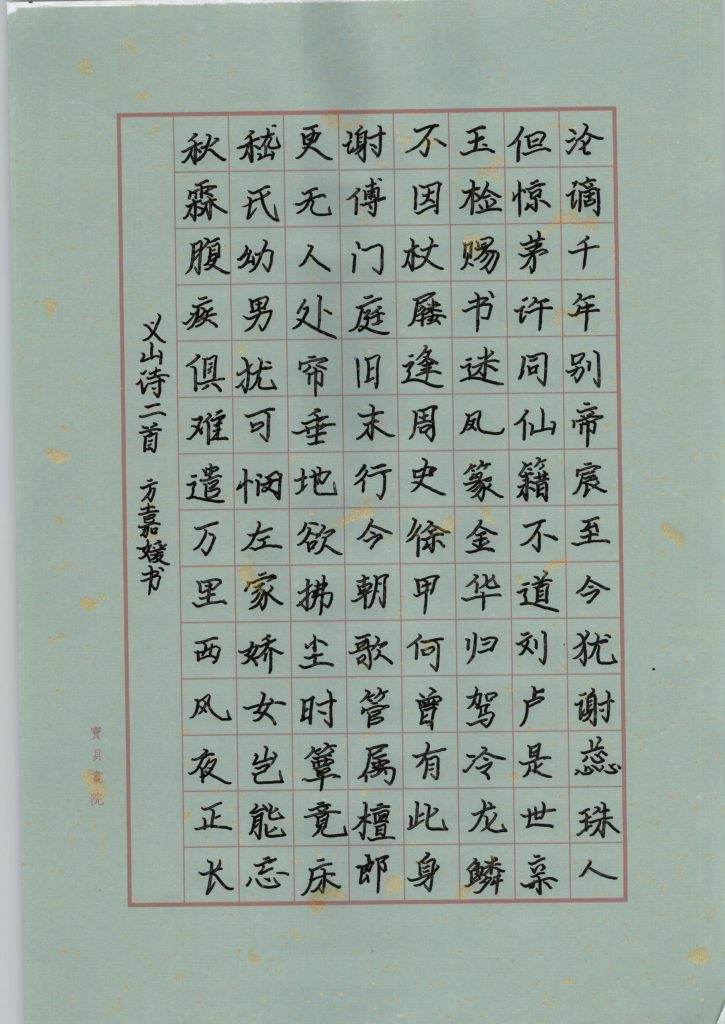 沦谪千年别帝宸至今犹谢蕊珠人
但惊茅许同仙籍不道刘卢是世亲
玉检赐书迷凤篆金华归驾冷龙鳞
不因杖屦逢周史徐甲何曾有此身
谢傅门庭旧末行今朝歌管属檀郎
更无人处帘垂地欲拂尘时簟竟床
嵇氏幼男犹可悯左家娇女岂能忘
秋霖腹疾俱难遣万里西风夜正长
义山诗二首 方嘉媛书
寶貝畫院